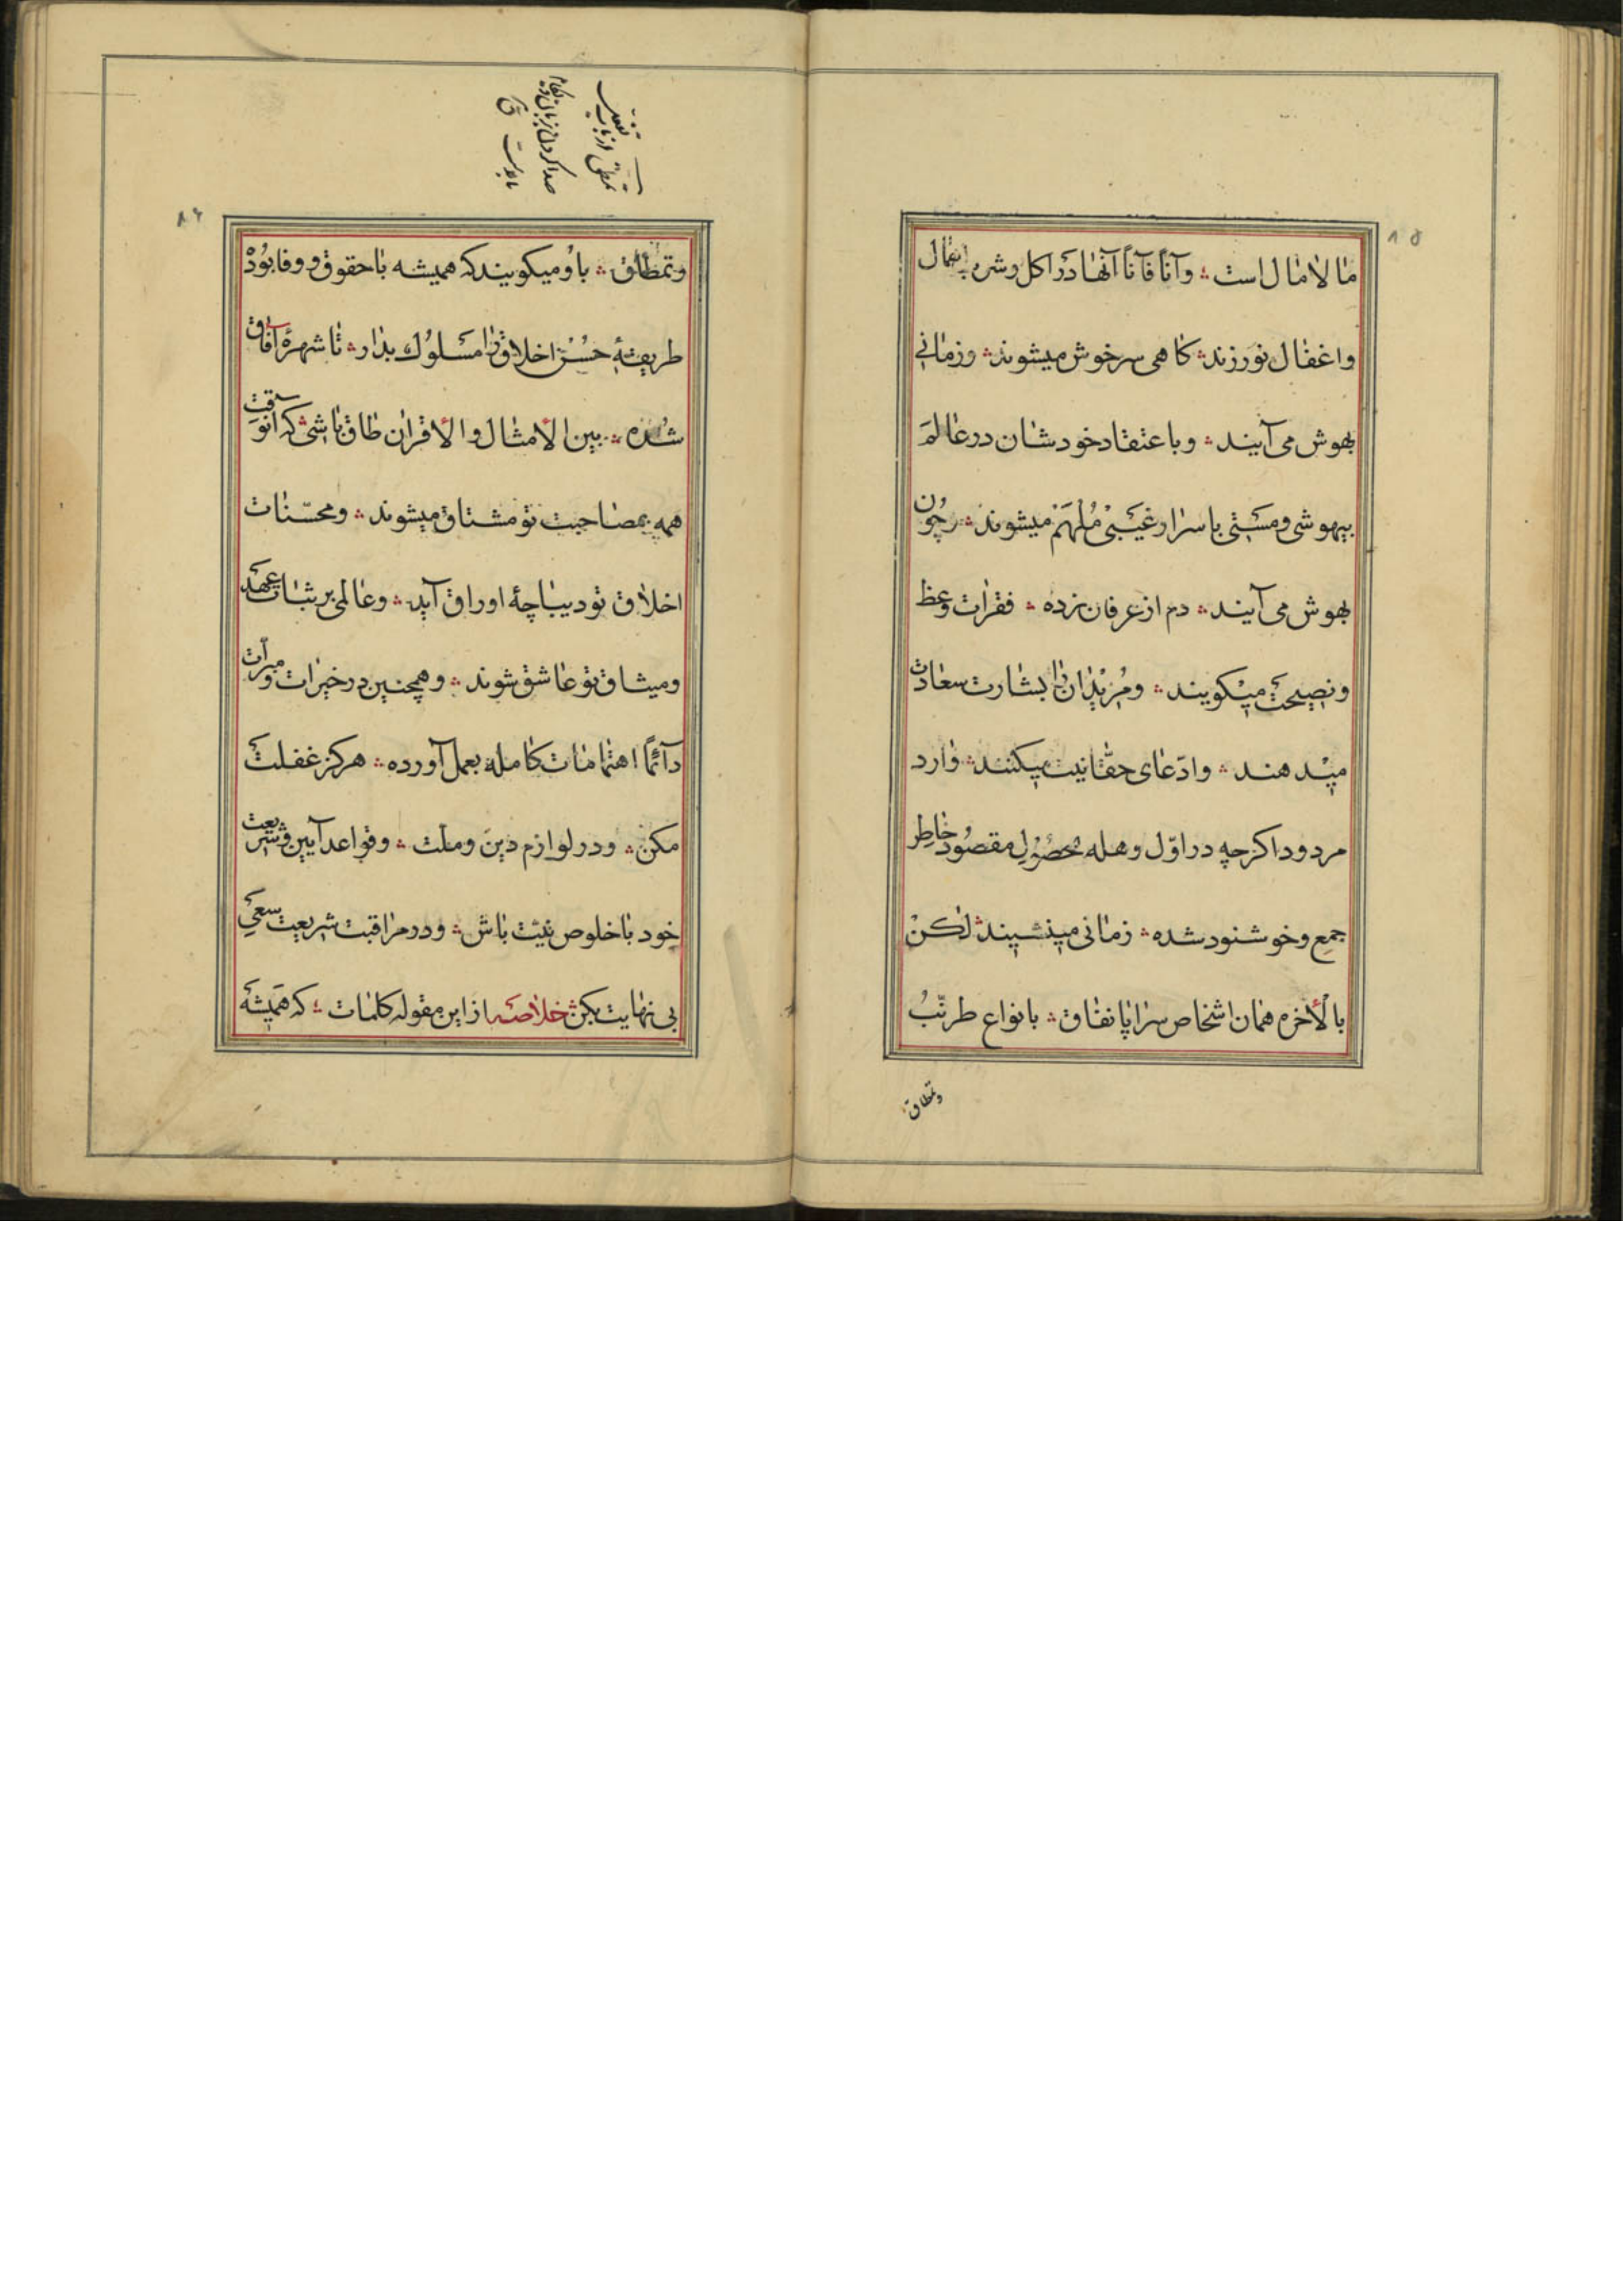 ۸۵
مالامال است ؞ وآناً فآناً آنها در اکل وشره اهمال
واغفال نورزند ؞ کاهی سرخوش میشوند ؞ وزمانی
بهوش می آیند ؞ وباعتقاد خودشان در عالم
بیهوشی ومستی باسرار غیبی ملهم میشوند ؞ چون
بهوش می آیند ؞ دم از عرفان زده ؞ فقرات وعظ
ونصیحت میکویند ؞ ومریدان را بشارت سعادت
میدهند ؞ وادّعای حقّانیت میکنند ؞ وارد
مردودا کرچه در اوّل وهله محصول مقصود خاطر
جمع وخوشنود شده ؞ زمانی مینشیند ؞ لکن
بالأخره همان اشخاص سراپا نفاق ؞ بانواع طرنب
وتمطاق
۸۶
تمطق از باب تفعل
صدا کردن زبان وکام
ق
وتمطاق ؞ باو میکویند که همیشه با حقوق ووفا بود
طریقهٔ حسن اخلاق را مسلوک بدار ؞ تا شهرهٔ آفاق
شده ؞ بین الأمثال والأقران طاق باشی ؞ که آنوقت
همه بمصاحبت تو مشتاق میشوند ؞ ومحسّنات
اخلاق تو دیباچهٔ اوراق آید ؞ وعالمی بر ثبات عهد
ومیثاق تو عاشق شوند ؞ وهمچنین در خیرات ومبرات
دآئماً اهتمامات کامله بعمل آورده ؞ هرکز غفلت
مکن ؞ ودر لوازم دین وملت ؞ وقواعد آیین وشریعت
خود با خلوص نیت باش ؞ ودر مراقبت شریعت سعی
بی نهایت بکن ؞ خلاصه از این مقوله کلمات ؞ که همیشه